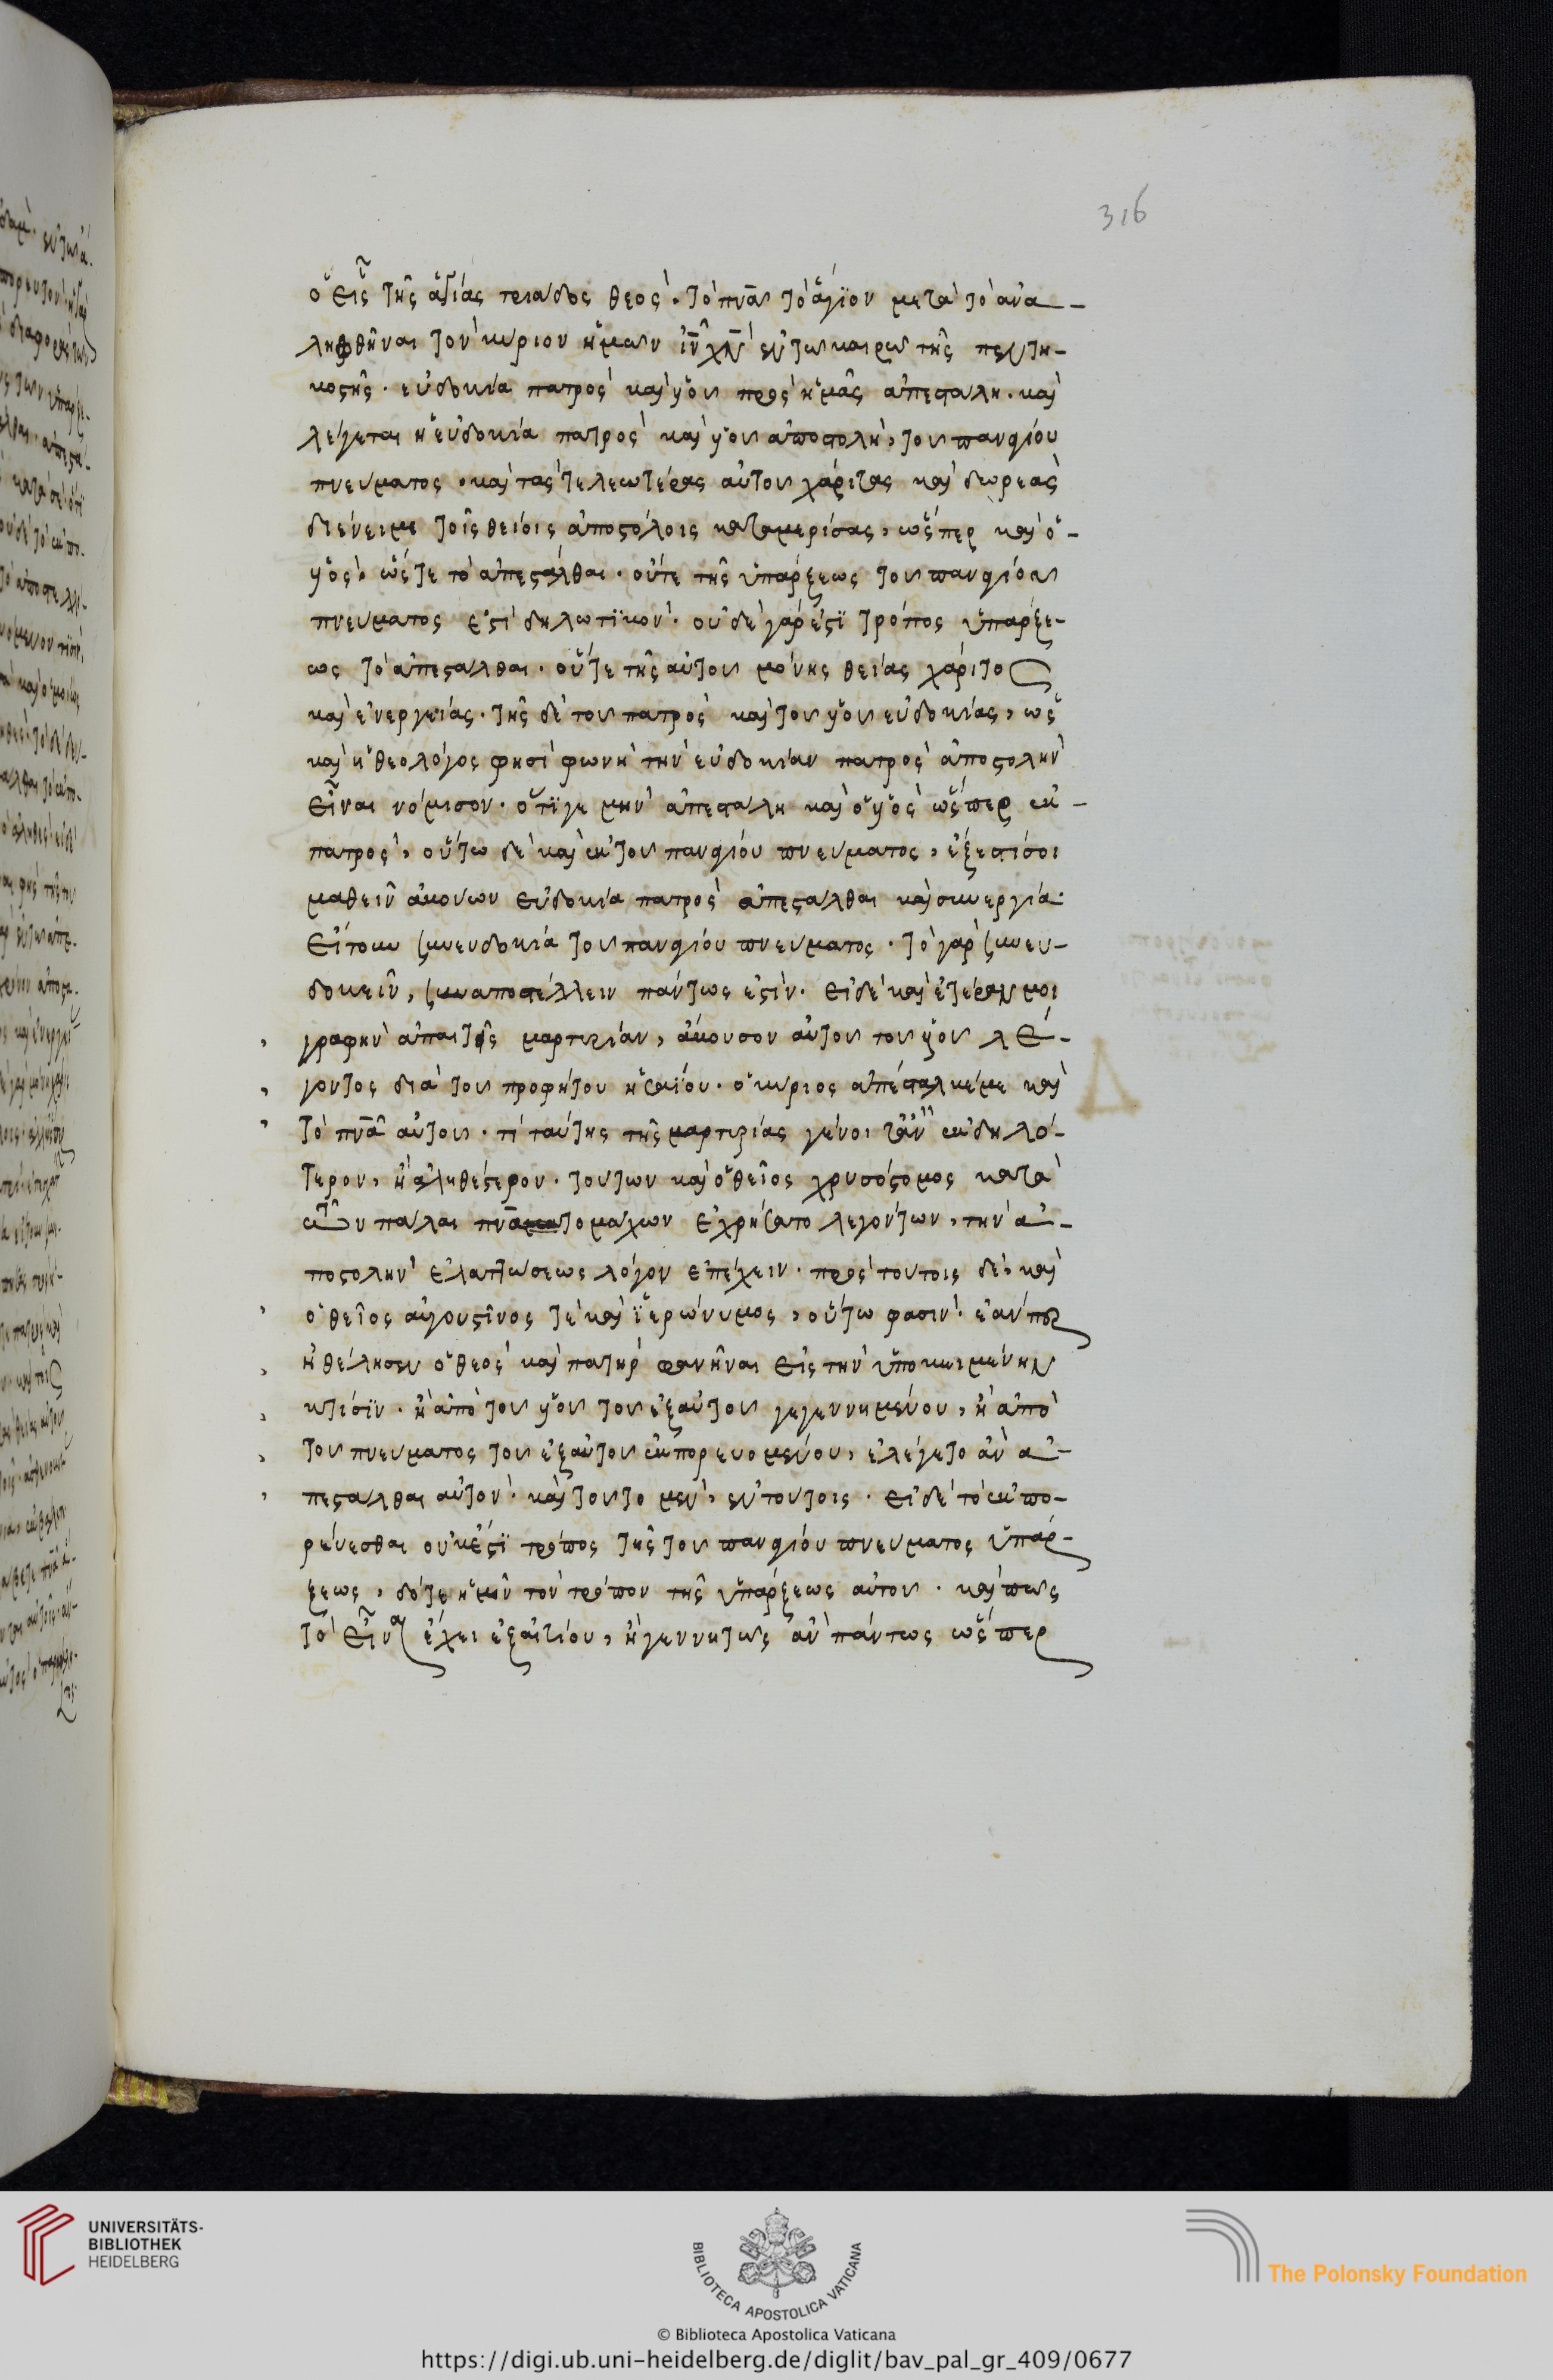 316
ὁ εἷς τῆς ἁγίας τριάδος θεός. τὸ πνᾶ τὸ ἅγϊον μετὰ τὸ ἀνα-
ληφθῆναι τὸν κύριον ἡμῶν ἰν̄ χν̄ ἐν τῶ καιρῶ τῆς πεντη-
κοστῆς. εὐδοκία πατρὸς καὶ υἱοῦ πρὸς ἡμᾶς ἀπεστάλη. καὶ
λέγεται ἡ εὐδοκία πατρὸς καὶ υἱοῦ ἀποστολὴ, τοῦ παναγίου
πνεύματος, καὶ τὰς τελεωτέρας αὐτοῦ χάριτας καὶ δωρεὰς
διένειμε τοῖς θείοις ἀποστόλοις καταμερίσας, ὥσπερ καὶ ὁ
υἱός, ὥστε τὸ ἀπεστάλθαι. οὔτε τῆς ὑπάρξεως τοῦ παναγίου
πνεύματος ἐστὶ δηλωτϊκόν. οὐδὲ γάρ ἐστϊ τρόπος ὑπάρξε-
ως τὸ ἀπεστάλθαι. οὔτε τῆς αὐτοῦ μόνης θείας χάριτος
καὶ ἐνεργείας. τῆς δὲ τοῦ πατρὸς καὶ τοῦ υἱοῦ εὐδοκίας, ὡς
καὶ ἡ θεολόγος φησὶ φωνὴ τὴν εὐδοκίαν πατρὸς ἀποστολὴν
εἶναι νόμισον. ὅτϊ γε μὴν ἀπεστάλη καὶ ὁ υἱὸς ὥσπερ ἐκ
πατρὸς, οὕτω δὲ καὶ ἐκ τοῦ παναγίου πνεύματος, ἔξεστί σοι
μαθεῖν ἀκούων εὐδοκία πατρὸς ἀπεστάλθαι καὶ συνεργία
εἴτουν συνευδοκία τοῦ παναγίου πνεύματος. τὸ γὰρ συνευ-
δοκεῖν, συναποστέλλειν πάντως ἐστίν. εἰ δὲ καὶ ἑτέραν μοι
γραφὴν ἀπαιτῆς μαρτυρίαν, ἄκουσον αὐτοῦ τοῦ υἱοῦ λέ-
γοντος διὰ τοῦ προφήτου ἡσαΐου. ὁ κύριος ἀπέσταλκέ με καὶ
τὸ πνᾶ αὐτοῦ. τί ταύτης τῆς μαρτυρίας γένοιτ' ἂν ἐκδηλό-
τερον, ἢ ἀληθέστερον. τούτων καὶ ὁ θεῖος χρυσόστομος κατὰ
τῶν πάλαι πνα̅ματομάχων ἐχρήσατο λεγόντων, τὴν ἀ-
ποστολὴν ἐλαττώσεως λόγον ἐπέχειν. πρὸς τούτοις δὲ, καὶ
ὁ θεῖος αὐγουστῖνος τὲ καὶ ϊερώνυμος, οὕτω φασίν. ἐάν περ
ἠθέλησεν ὁ θεὸς καὶ πατὴρ φανῆναι εἰς τὴν ὑποκειμένην
κτίσϊν. ἢ ἀπὸ τοῦ υἱοῦ τοῦ ἐξ αὐτοῦ γεγεννημένου, ἢ ἀπὸ
τοῦ πνεύματος τοῦ ἐξ αὐτοῦ ἐκπορευομένου, ἐλέγετο ἂν ἀ-
πεστάλθαι αὐτόν. καὶ τοῦτο μὲν, ἐν τούτοις. εἰ δὲ τὸ ἐκπο-
ρεύεσθαι οὐκ ἔστϊ τρόπος τῆς τοῦ παναγίου πνεύματος ὑπάρ-
ξεως, δότε ἡμῖν τὸν τρόπον τῆς ὑπάρξεως αὐτοῦ. καὶ πῶς
τὸ εἶναι ἔχει ἐξ αἰτίου, ἢ γεννητῶς ἂν πάντως ὥσπερ
UNIVERSITÄTS-
BIBLIOTHEK
HEIDELBERG
BIBLIOTECA APOSTOLICA VATICANA
The Polonsky Foundation
© Biblioteca Apostolica Vaticana
https://digi.ub.uni-heidelberg.de/diglit/bav_pal_gr_409/0677